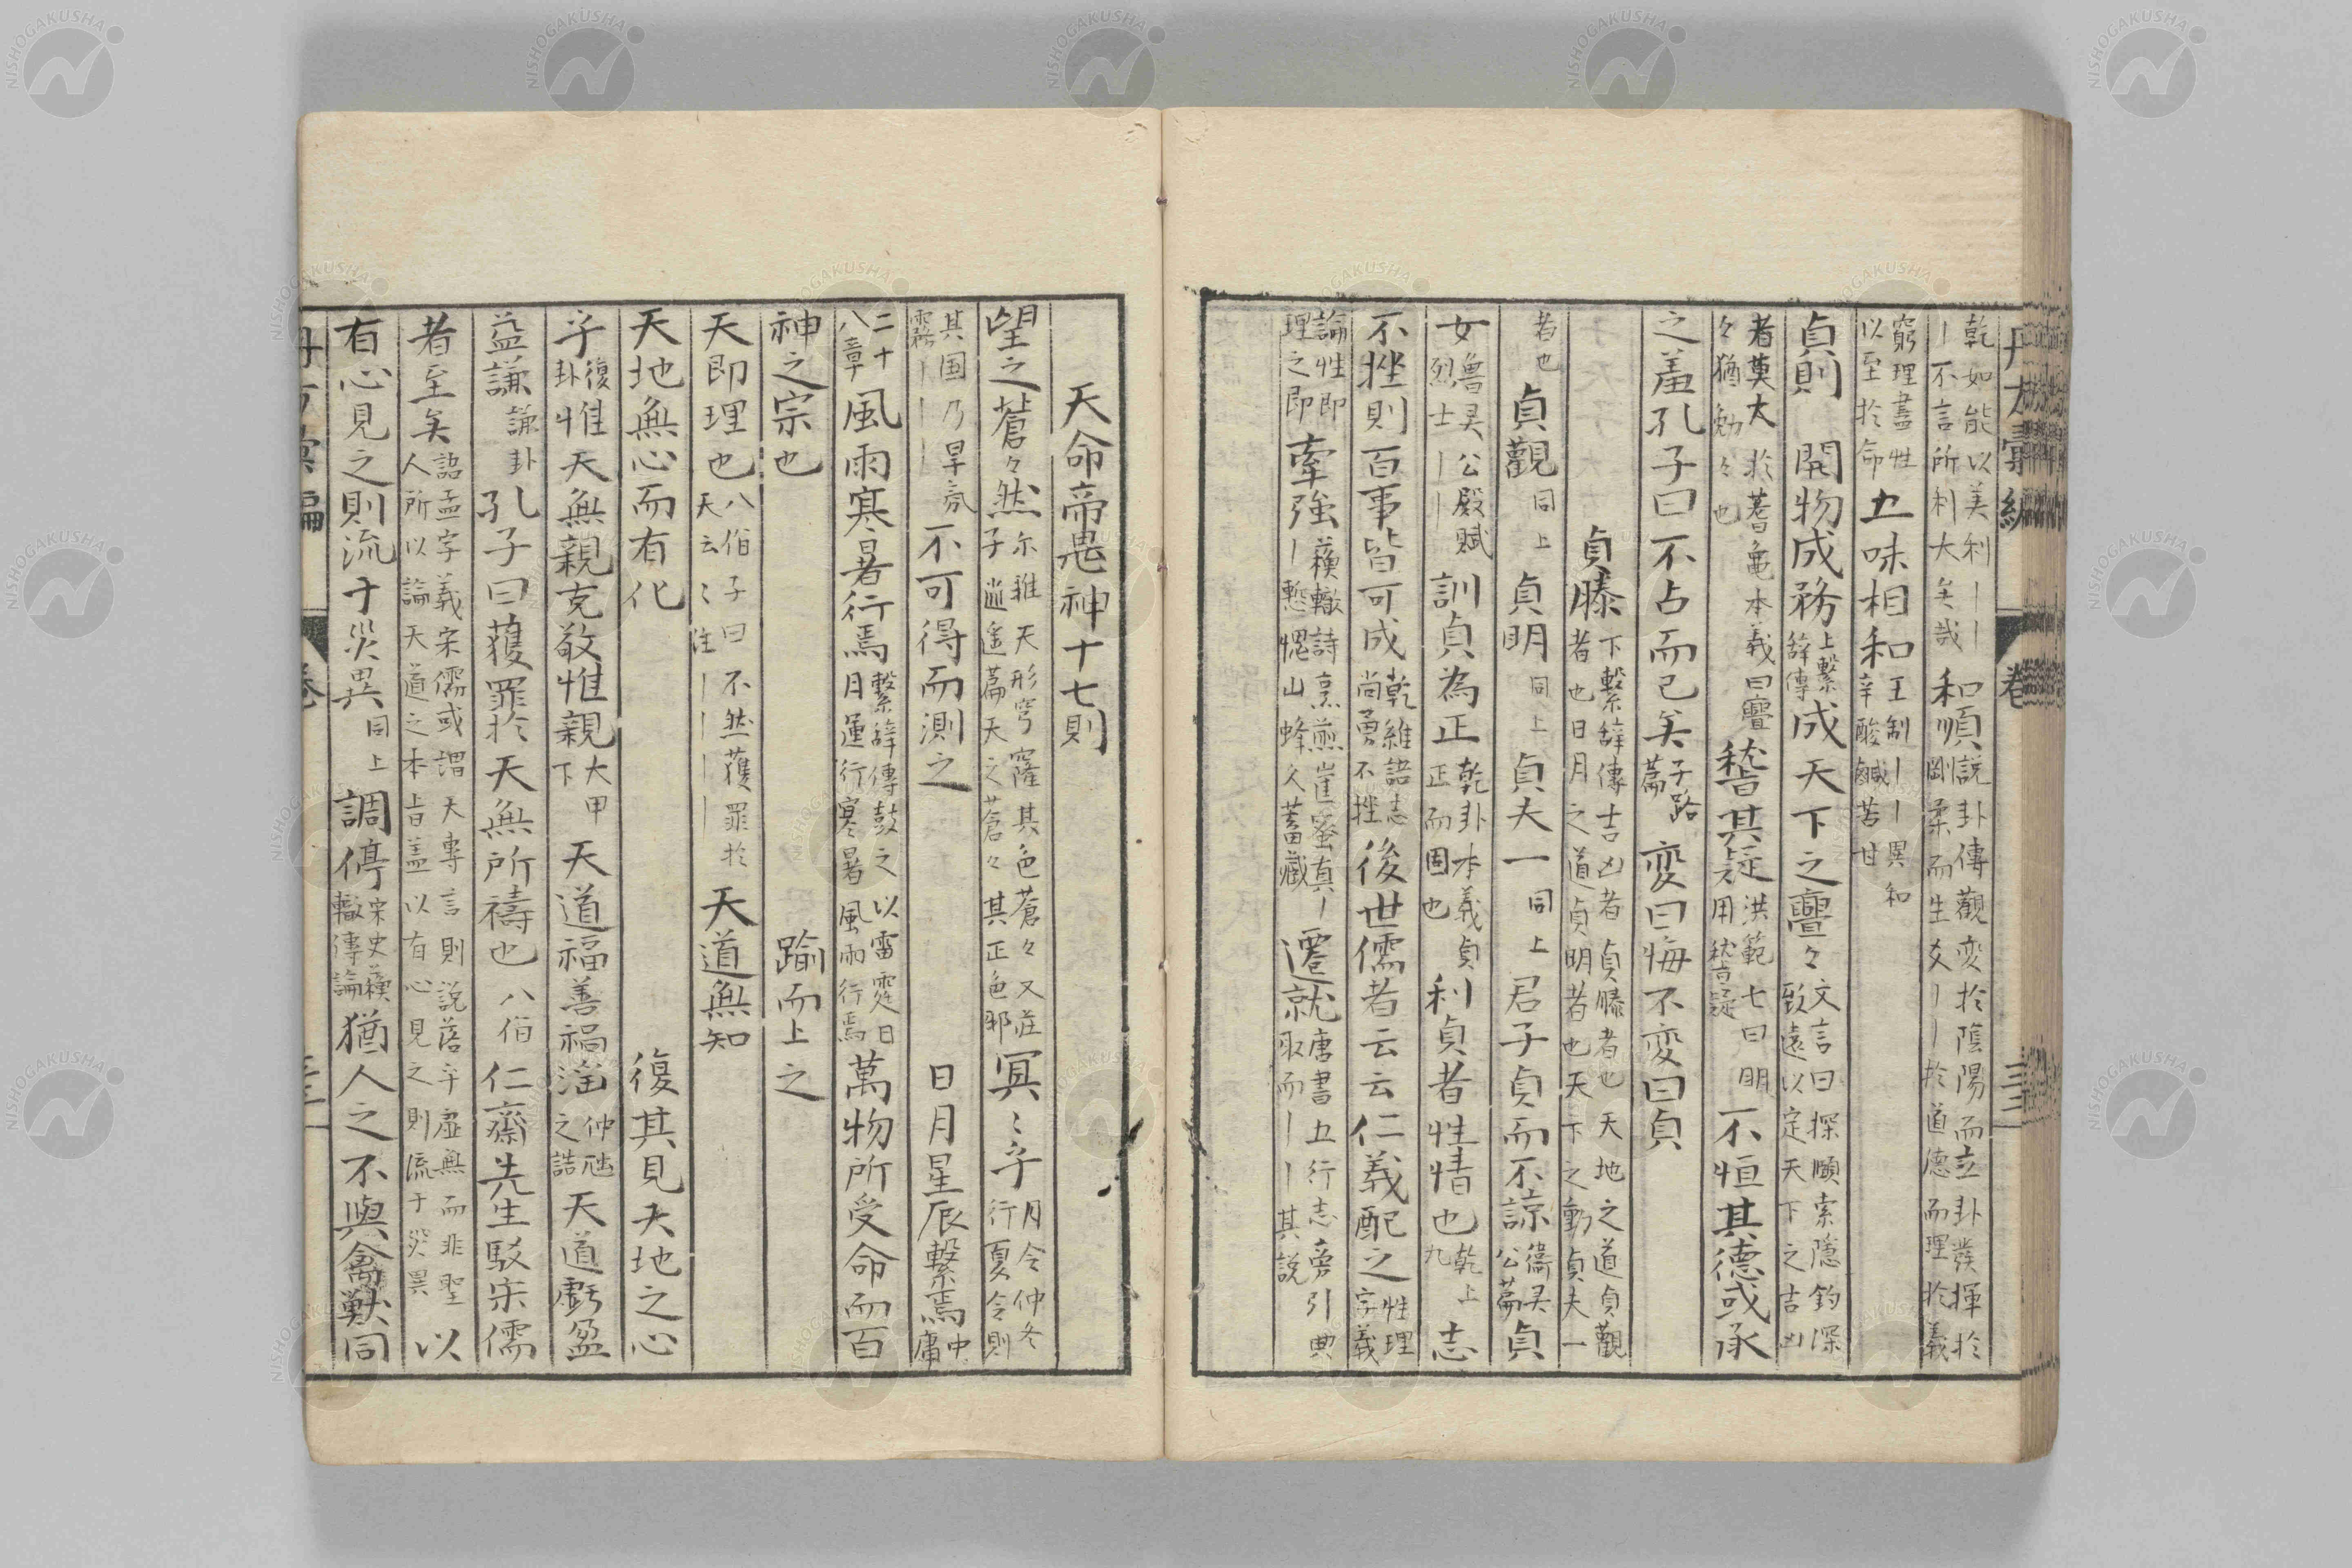 丹
卷
三三
乾如能以美利｜｜｜不言所利大矣哉和順説卦傳觀変於陰陽而立卦發揮於剛柔而生爻｜｜於道德而理於義
窮理盡性以至於命五味相和王制｜｜異和辛酸鹹苦甘
貞則　開物成務上繫辞傳成天下之亹々文言曰探賾索隱鈞深致遠以定天下之吉凶
者莫大於蓍亀本義曰亹々猶勉々也稽其疑洪範七曰明用稽疑不恒其德或承
之羞孔子曰不占而已矣子路篇変曰悔不変曰貞
貞勝下繫辞傳吉凶者貞勝者也天地之道貞觀者也日月之道貞明者也天下之動貞夫一
者也貞觀同上貞明同上貞夫一同上君子貞而不諒衛灵公篇貞
女魯灵公殿賦烈士｜｜訓貞為正乾卦本義貞正而固也利貞者性情也乾上九志
不挫則百事皆可成乾維諸志尚勇不挫後世儒者云云仁義配之性理字義
論性即理之即牽強蘓轍詩烹煎崖蜜真｜｜慙愧山蜂久蓄藏遷就唐書五行志旁引典取而｜｜其説
天命帝鬼神十七則
望之蒼々然尓雅天形穹窿其色蒼々又荘子逍遥篇天之蒼々其正色邪冥〻乎月令仲冬行夏令則
其国乃旱氛霧｜｜｜｜不可得而測之　日月星辰繫焉中庸
二十八章風雨寒暑行焉繫辞傳鼓之以雷霆日月運行寒暑風雨行焉萬物所受命而百
神之宗也　踰而上之
天即理也八佾子曰不然蔑罪於天云〻注｜｜｜｜｜天道無知
天地無心而有化　復其見天地之心
乎復卦惟天無親克敬惟親大甲下天道福善禍淫仲虺之誥天道虧盈
益謙謙卦孔子曰獲罪於天無所禱也八佾仁齋先生駁宋儒
者至矣語孟字義宋儒或謂天專言則説落乎虚無而非聖人所以論天道之本旨盖以有心見之則流于災異以
有心見之則流于災異同上調停宋史蘓轍傳論猶人之不與禽獣同